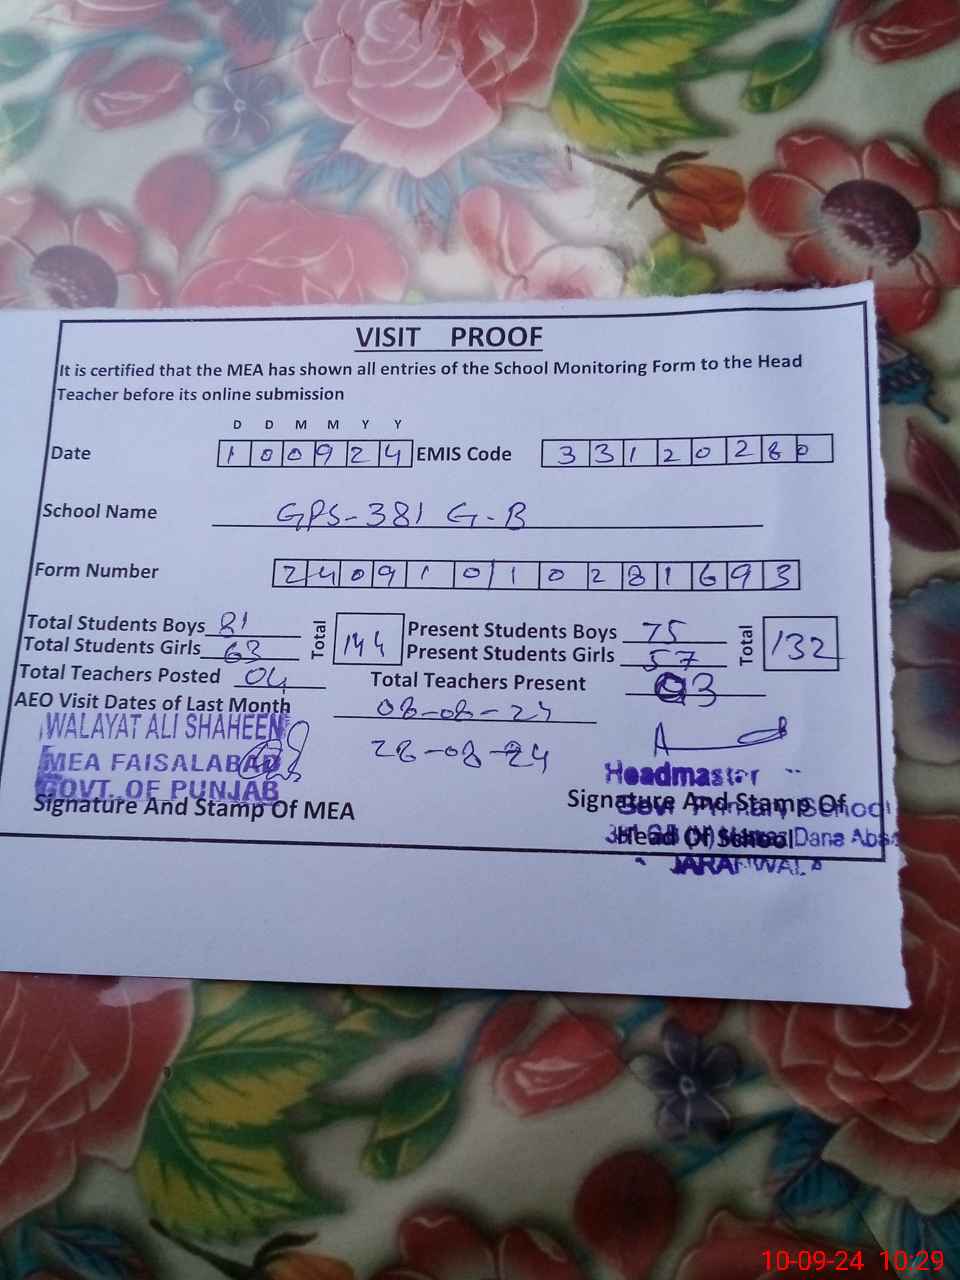 VISIT PROOF
It is certified that the MEA has shown all entries of the School Monitoring Form to the Head
Teacher before its online submission
D D M M Y Y
Date 1 0 0 9 2 4 EMIS Code 3 3 1 2 0 2 8 0
School Name GPS-381 G-B
Form Number 2 4 0 9 1 0 1 0 2 8 1 6 9 3
Total Students Boys 81 Total 144 Present Students Boys 75 Total 132
Total Students Girls 63 Present Students Girls 57
Total Teachers Posted 04 Total Teachers Present 03
AEO Visit Dates of Last Month 08-08-24
28-08-24
WALAYAT ALI SHAHEEN
MEA FAISALABAD
GOVT. OF PUNJAB
Signature And Stamp Of MEA
Headmaster
Signature And Stamp Of
Govt Primary School
Head Of School
Dana Aba
JARANWALA
10-09-24 10:29